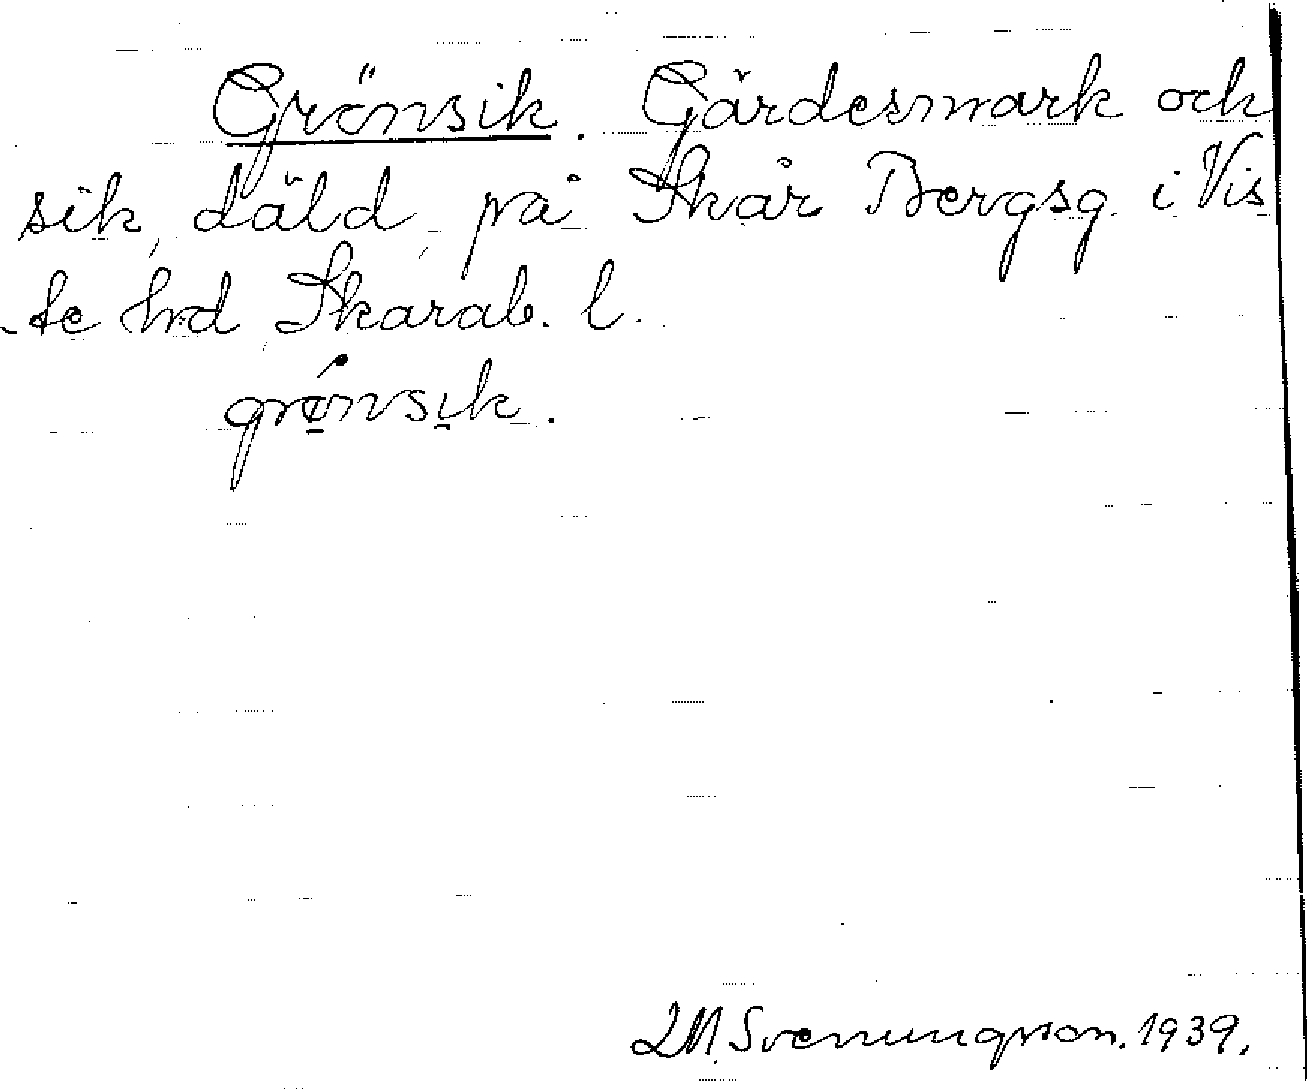 Grönsik. Gärdesmark och
sik, däld, på Skår Bergsg. i Vis
-te hd, Skarab. l.
grönsik.
L M. Svenungsson. 1939.